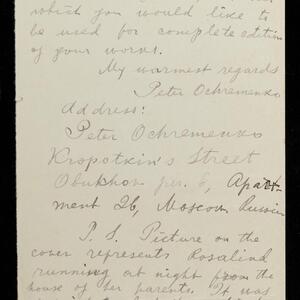 which you would like to
be used for complete edition
of your works.
My warmest regards
Peter Ochremenko
Address:
Peter Ochremenko
Kropotkin's Street
Obukhov per. 6, Apart-
ment 26, Moscow Russia
P. S. Picture on the
cover represents Rosalind
running at night from the
house of her parents. It was